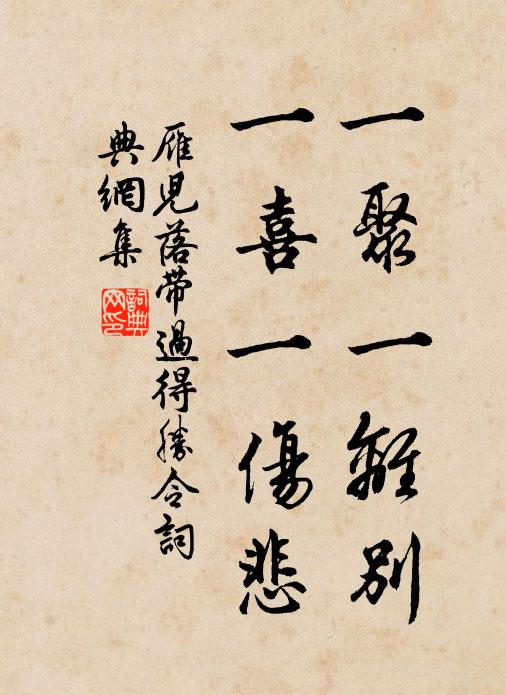 一聚一離别
一喜一傷悲
雁児落带過得勝令詞
典網集
詞典
网印